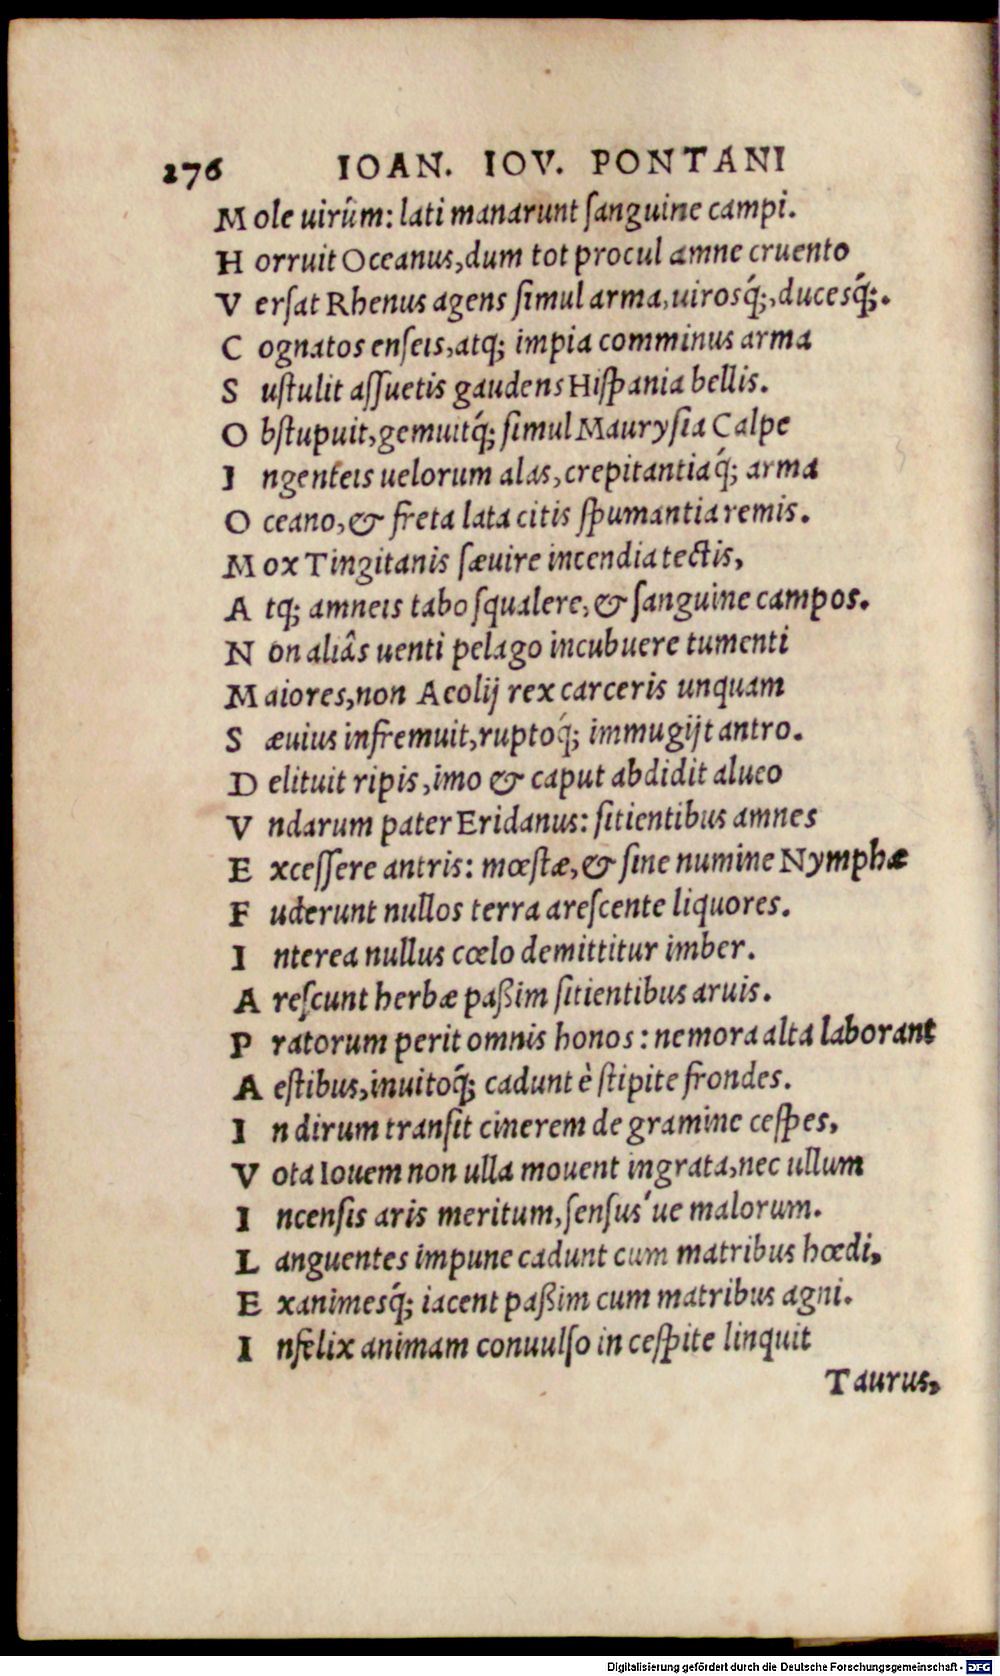 276 IOAN. IOV. PONTANI
Mole uirûm: lati manarunt ſanguine campi.
Horruit Oceanus, dum tot procul amne cruento
Verſat Rhenus agens ſimul arma, uirosq́;, ducesq́;.
Cognatos enſeis, atq; impia comminus arma
Suſtulit aſſuetis gaudens Hiſpania bellis.
Obſtupuit, gemuitq́; ſimul Mauryſia Calpe
Ingenteis uelorum alas, crepitantiaq́; arma
Oceano, & freta lata citis ſpumantia remis.
Mox Tingitanis ſæuire incendia tectis,
Atq; amneis tabo ſqualere, & ſanguine campos.
Non aliâs uenti pelago incubuere tumenti
Maiores, non Aeolij rex carceris unquam
Sæuius infremuit, ruptoq́; immugijt antro.
Delituit ripis, imo & caput abdidit alueo
Vndarum pater Eridanus: ſitientibus amnes
Exceſſere antris: mœſtæ, & ſine numine Nymphæ
Fuderunt nullos terra areſcente liquores.
Interea nullus cœlo demittitur imber.
Areſcunt herbæ paßim ſitientibus aruis.
Pratorum perit omnis honos: nemora alta laborant
Aeſtibus, inuitoq́; cadunt è ſtipite frondes.
In dirum tranſit cinerem de gramine ceſpes,
Vota Iouem non ulla mouent ingrata, nec ullum
Incenſis aris meritum, ſenſus'ue malorum.
Languentes impune cadunt cum matribus hœdi,
Exanimesq́; iacent paßim cum matribus agni.
Infelix animam conuulſo in ceſpite linquit
Taurus,
Digitalisierung gefördert durch die Deutsche Forschungsgemeinschaft - DFG